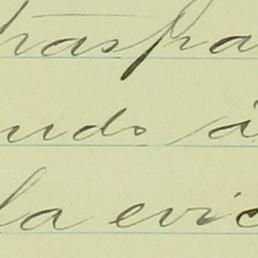 traspa
ndo á
la evic